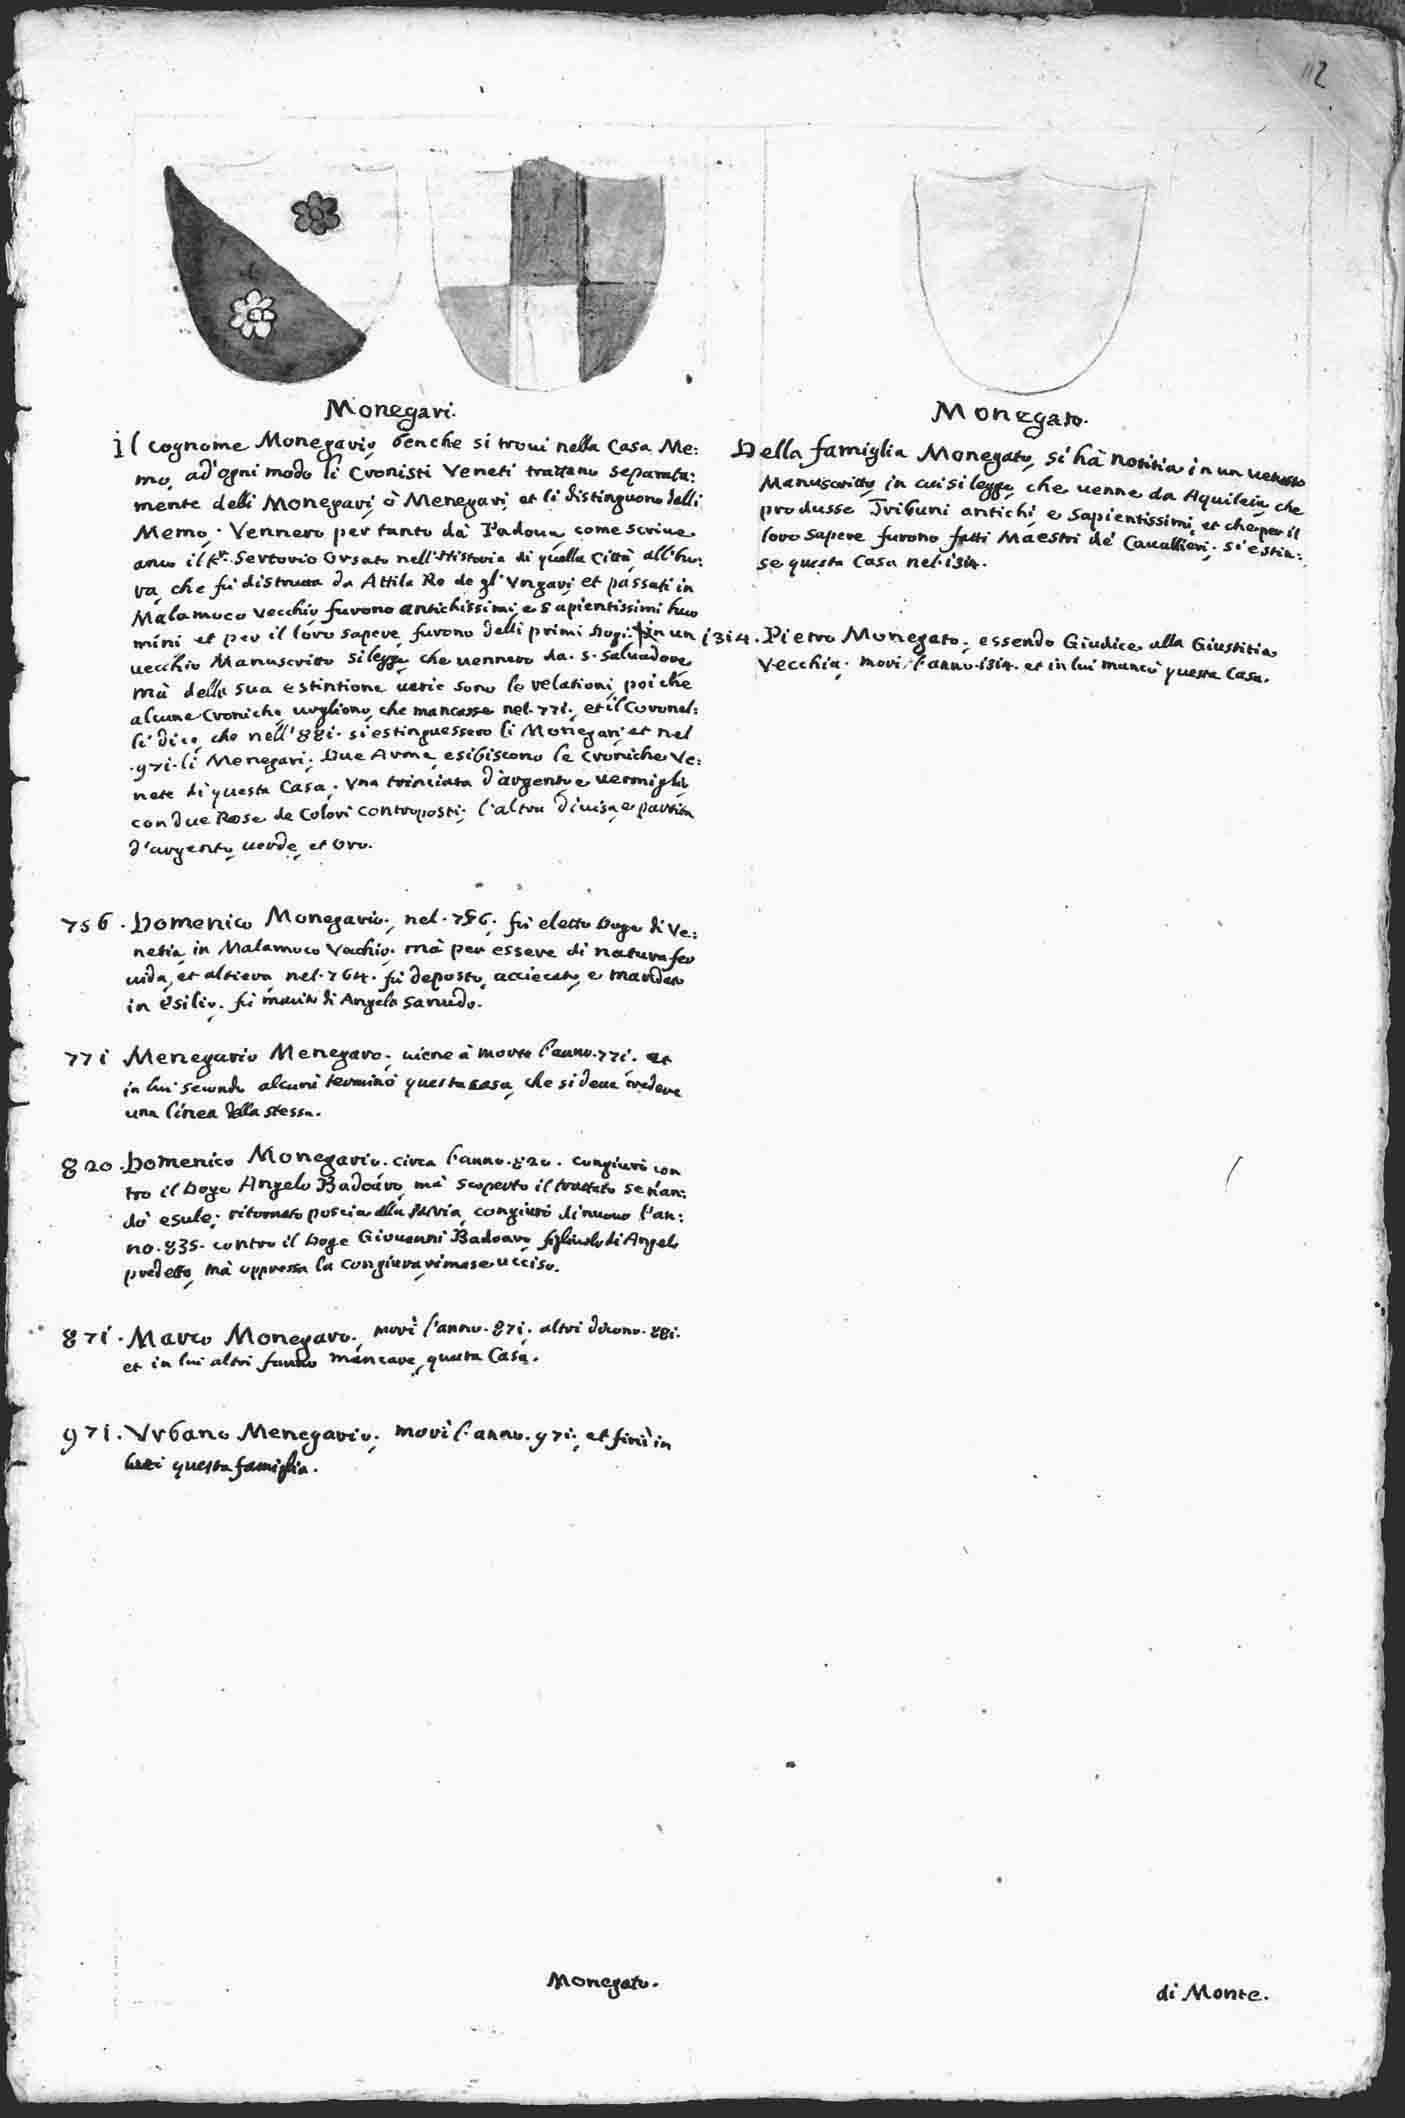 112
Monegari.
Il cognome Monegario, benche si troui nella Casa Me:
mo, ad'ogni modo li Cronisti Veneti trattano separata:
mente delli Monegari, ò Menegari, et li distinguono dalli
Memo. Vennero per tanto da Padoua, come scriue
anco il Kr. Sertorio Orsato nell'Historia di quella Città, all'ho:
ra, che fù distrutta da Attila Re de gl'Vngari, et passati in
Malamoco Vecchio, furono antichissimi, e sapientissimi huo
mini et per il loro sapere, furono delli primi Dogi. in un
uecchio Manuscritto si legge, che uennero da S. Saluadore,
mà della sua estintione uarie sono le relationi, poiche
alcune Croniche uogliono, che mancasse nel 771., et il Coronel:
li dice, che nell'881. si estinguessero li Monegari, et nel
.971. li Menegari. Due Arme esibiscono le Croniche Ve:
nete di questa Casa, Vna trinciata d'argento, e uermiglio,
con due Rose de Colori contraposti; l'altra diuisa, e partita
d'argento, uerde, et oro.
756. Domenico Monegario, nel .756. fù eletto Doge di Ve:
netia, in Malamoco Vechio. mà per essere di natura fer
uida, et altiera, nel .764. fù deposto, acciecato, e mandato
in esilio. fù marito di Angela Sanudo.
771 Menegario Menegaro, uiene à morte l'anno .771. et
in lui secondo alcuni terminò questa casa, che si deue credere
una linea della stessa.
820. Domenico Monegario. circa l'anno .820. congiurò con
tro il Doge Angelo Badoaro, mà scoperto il trattato se n'an:
dò esule; ritornato poscia alla Patria, congiurò di nuouo l'an:
no .835. contro il Doge Giouanni Badoaro, figliuolo di Angelo
predetto, mà oppressa la congiura, rimase ucciso.
871. Marco Monegaro, morì l'anno .871. altri dicono .881.
et in lui altri fanno mancare, questa Casa.
971. Vrbano Menegario, morì l'anno .971., et finì in
lui questa famiglia.
Monegato.
Monegato.
Della famiglia Monegato, si hà notitia in un uetusto
Manuscritto, in cui si legge, che uenne da Aquileia, che
produsse Tribuni antichi, e sapientissimi, et che per il
loro sapere furono fatti Maestri de' Cauallieri. si estin:
se questa Casa nel .1314.
1314. Pietro Monegato, essendo Giudice alla Giustitia
Vecchia. morì l'anno .1314. et in lui mancò questa Casa.
di Monte.